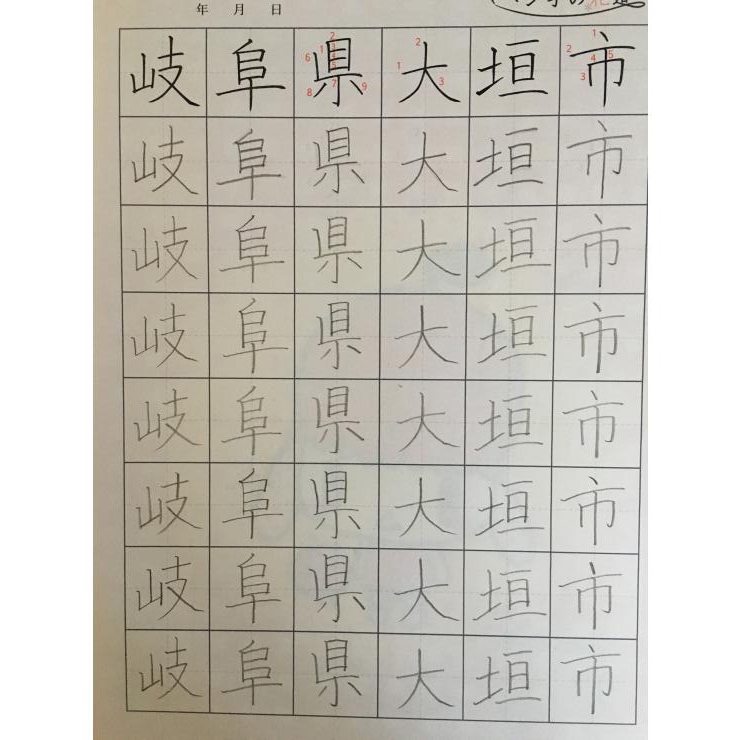 年 月 日
岐阜県大垣市
岐阜県大垣市
岐阜県大垣市
岐阜県大垣市
岐阜県大垣市
岐阜県大垣市
岐阜県大垣市
岐阜県大垣市